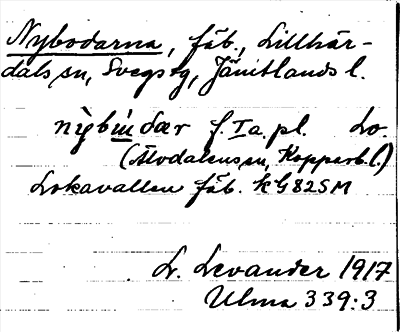 Nybodarna, fäb., Lillhär-
dals sn, Svegs tg, Jämtlands l.
nỳbú̲dær f. I a. pl. Lo.
(Älvdalens sn, Kopparb. l.)
Lokavallen fäb. KG82SM
L. Levander 1917
Ulma 339:3